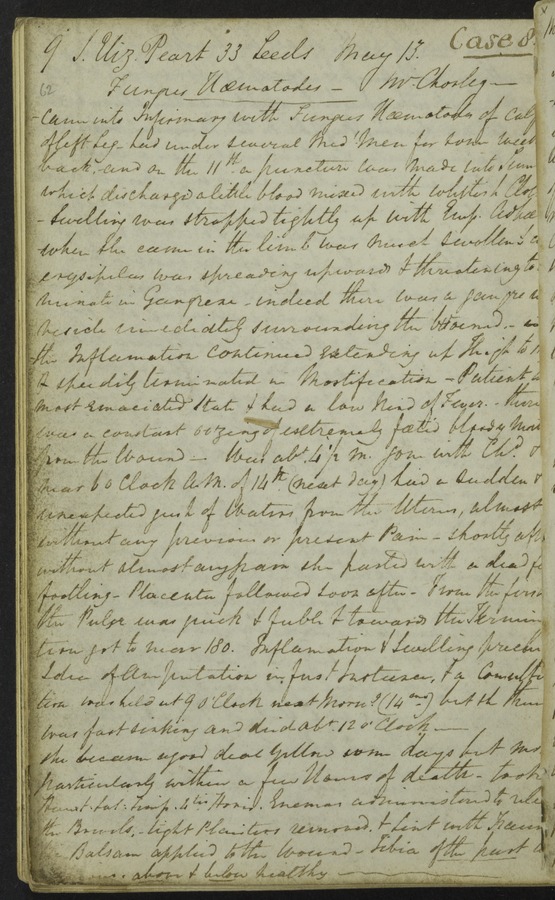 9 S. Eliz. Peart 33 Leeds May 13. Case 8
62 Fungus Hæmatodes — Mr Chorley —
- Came into Infirmary with Fungus Hæmatodes of Calf
of left Leg had under several Med! Men for some week
back, and on the 11th a puncture was made into
which discharged a little blood mixed with whitish
- Swelling was strapped tightly up with Emp. Adhæ
when she came in the limb was much swollen &
erysipelas was spreading upwards & threatening to
minate in Gangrene - indeed there was a gangren
vesicle immediately surrounding the Wound -
the Inflamation continued extending up thigh to
& speedily terminated in Mortification - Patient
most emaciated State & had a low kind of Fever. - there
was a constant oozing of extremely fœtid bloody
from the Wound - Was abt. 4½ m. gone with Chd.
near 6 o Clock A.M. of 14th (next day) had a sudden &
unexpected gush of Waters from the Uterus, almost
without any previous or present Pain - shortly aft
without almost any pain she parted with a dead
footling - Placenta followed soon after - From the first
the Pulse was quick & feeble & towards the Termin
tion got to near 180. Inflamation & Swelling preclu
Idea of Amputation in first Instance, & a Consulta
tion was held at 9 o'Clock next Morn? (14) but she then
was fast sinking and died abt. 12 o'Clock —
she became a good deal Yellow some days but
particularly within a few Hours of death - took
Haust. Sal. Simp. 4tis Horis. Enemas administered to
the Bowels, tight Plaisters removed & lint with
Balsam applied to the Wound - Tibia of the part
above & below healthy —